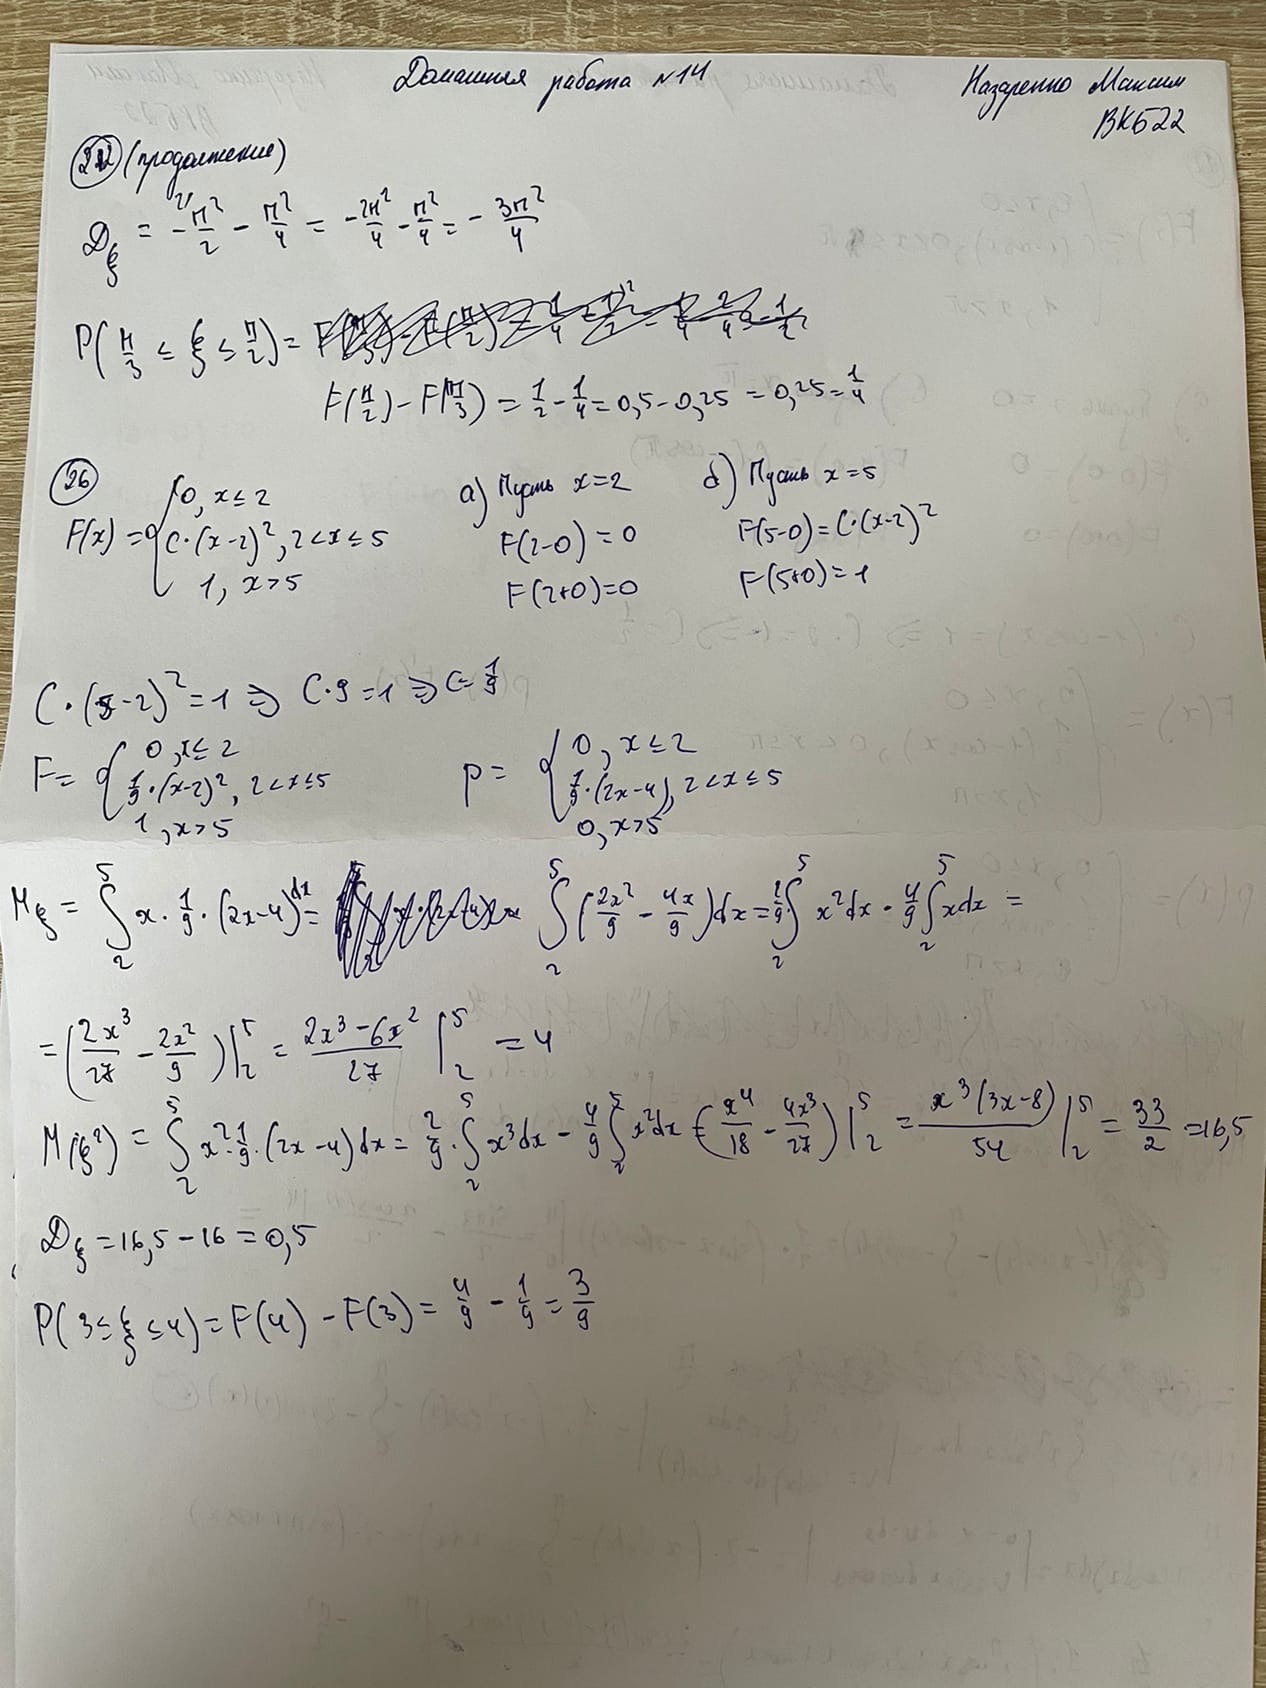 Домашняя работа №14
Назаренко Максим
ВКБ22
22 (продолжение)
Dξ = -π²/2 - π²/4 = -2π²/4 - π²/4 = -3π²/4
P(π/3 ≤ ξ ≤ π/2) =
F(π/2) - F(π/3) = 1/2 - 1/4 = 0,5 - 0,25 = 0,25 = 1/4
26
F(x) = { 0, x ≤ 2
C·(x-2)², 2 < x ≤ 5
1, x > 5
а) Пусть x = 2
F(2-0) = 0
F(2+0) = 0
б) Пусть x = 5
F(5-0) = C·(x-2)²
F(5+0) = 1
C·(5-2)² = 1 => C·9 = 1 => C = 1/9
F = { 0, x ≤ 2
1/9·(x-2)², 2 < x ≤ 5
1, x > 5
p = { 0, x ≤ 2
1/9·(2x-4), 2 < x ≤ 5
0, x > 5
Mξ = ∫₂⁵ x·1/9·(2x-4)dx = ∫₂⁵ (2x²/9 - 4x/9)dx = 2/9·∫₂⁵ x²dx - 4/9 ∫₂⁵ xdx =
= (2x³/27 - 2x²/9)|₂⁵ = (2x³-6x²)/27 |₂⁵ = 4
M(ξ²) = ∫₂⁵ x²·1/9·(2x-4)dx = 2/9·∫₂⁵ x³dx - 4/9 ∫₂⁵ x²dx = (x⁴/18 - 4x³/27)|₂⁵ = x³(3x-8)/54 |₂⁵ = 33/2 = 16,5
Dξ = 16,5 - 16 = 0,5
P(3 ≤ ξ ≤ 4) = F(4) - F(3) = 4/9 - 1/9 = 3/9